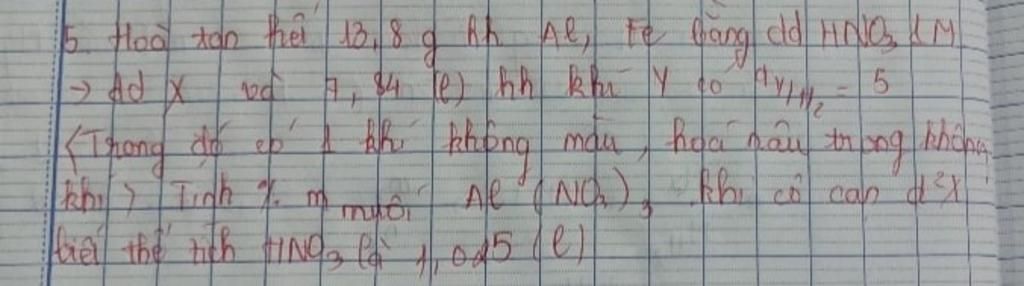 5. Hoà tan hết 13,8 g hh Al, Fe bằng dd HNO3 1M
→ dd X và 7,84 (l) hh khí Y có dY/H2 = 5
(Trong đó có 1 khí không màu, hoá nâu trong không
khí) Tính % m muối Al(NO3)3 khi cô cạn d²X
biết thể tích HNO3 là 1,025 (l)